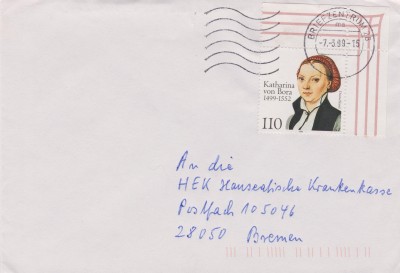 BRIEFZENTRUM
-7.-5.99-15
Katharina
von Bora
1499-1552
110
An die
HEK Hanseatische Krankenkasse
Postfach 105046
28050 Bremen